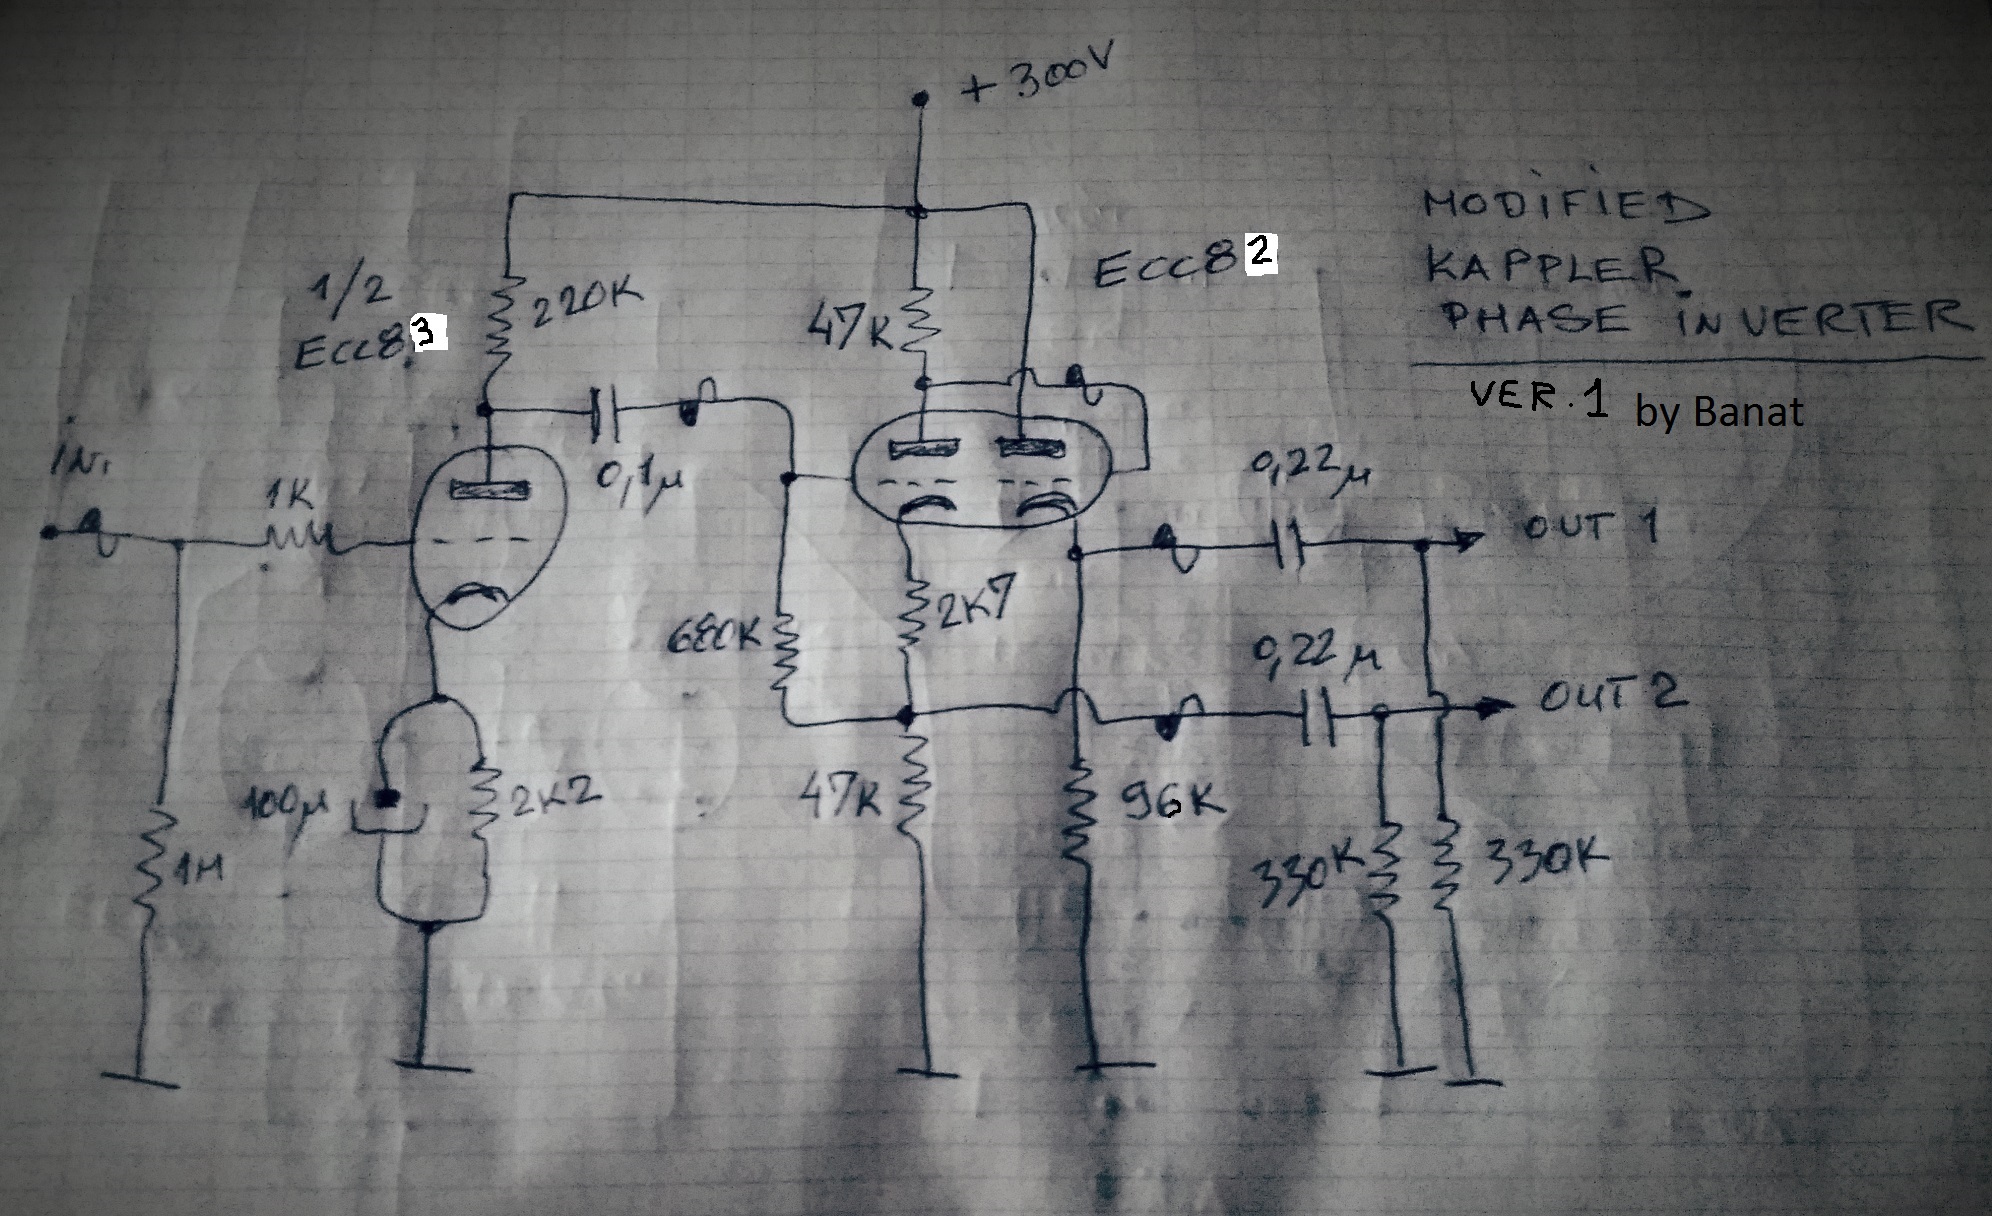 +300V
MODIFIED
KAPPLER
PHASE INVERTER
VER.1 by Banat
1/2
ECC83
220K
47K
ECC82
0,1μ
IN.
1K
0,22μ
OUT 1
2K7
680K
0,22μ
OUT 2
100μ
2K2
47K
96K
1M
330K
330K